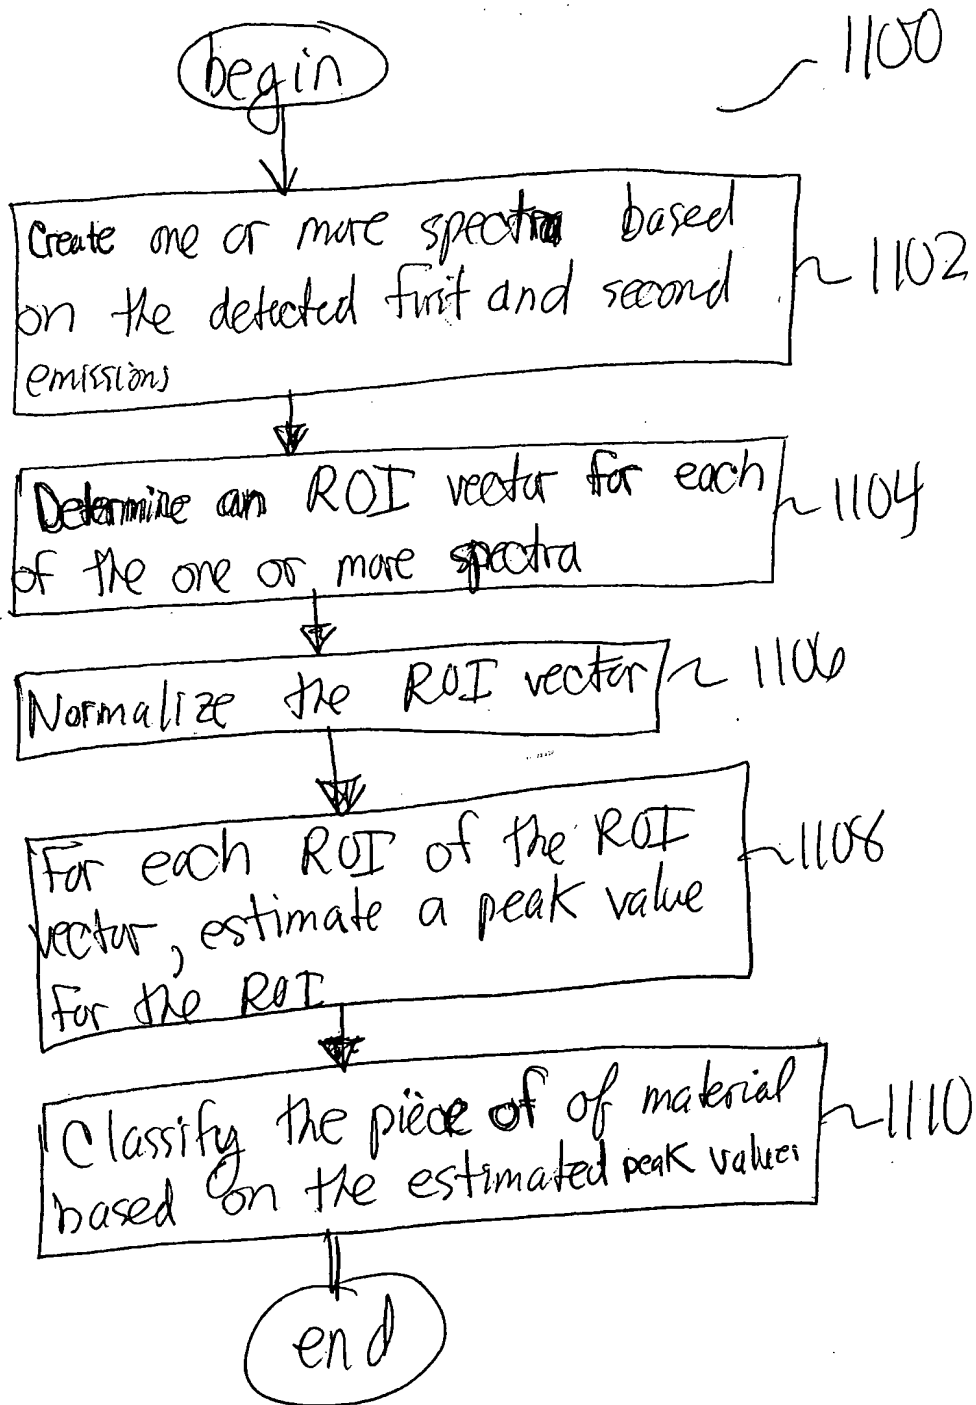 begin
1100
Create one or more spectra based
on the detected first and second
emissions
1102
Determine an ROI vector for each
of the one or more spectra
1104
Normalize the ROI vector
1106
For each ROI of the ROI
vector, estimate a peak value
for the ROI
1108
Classify the piece of of material
based on the estimated peak values
1110
end